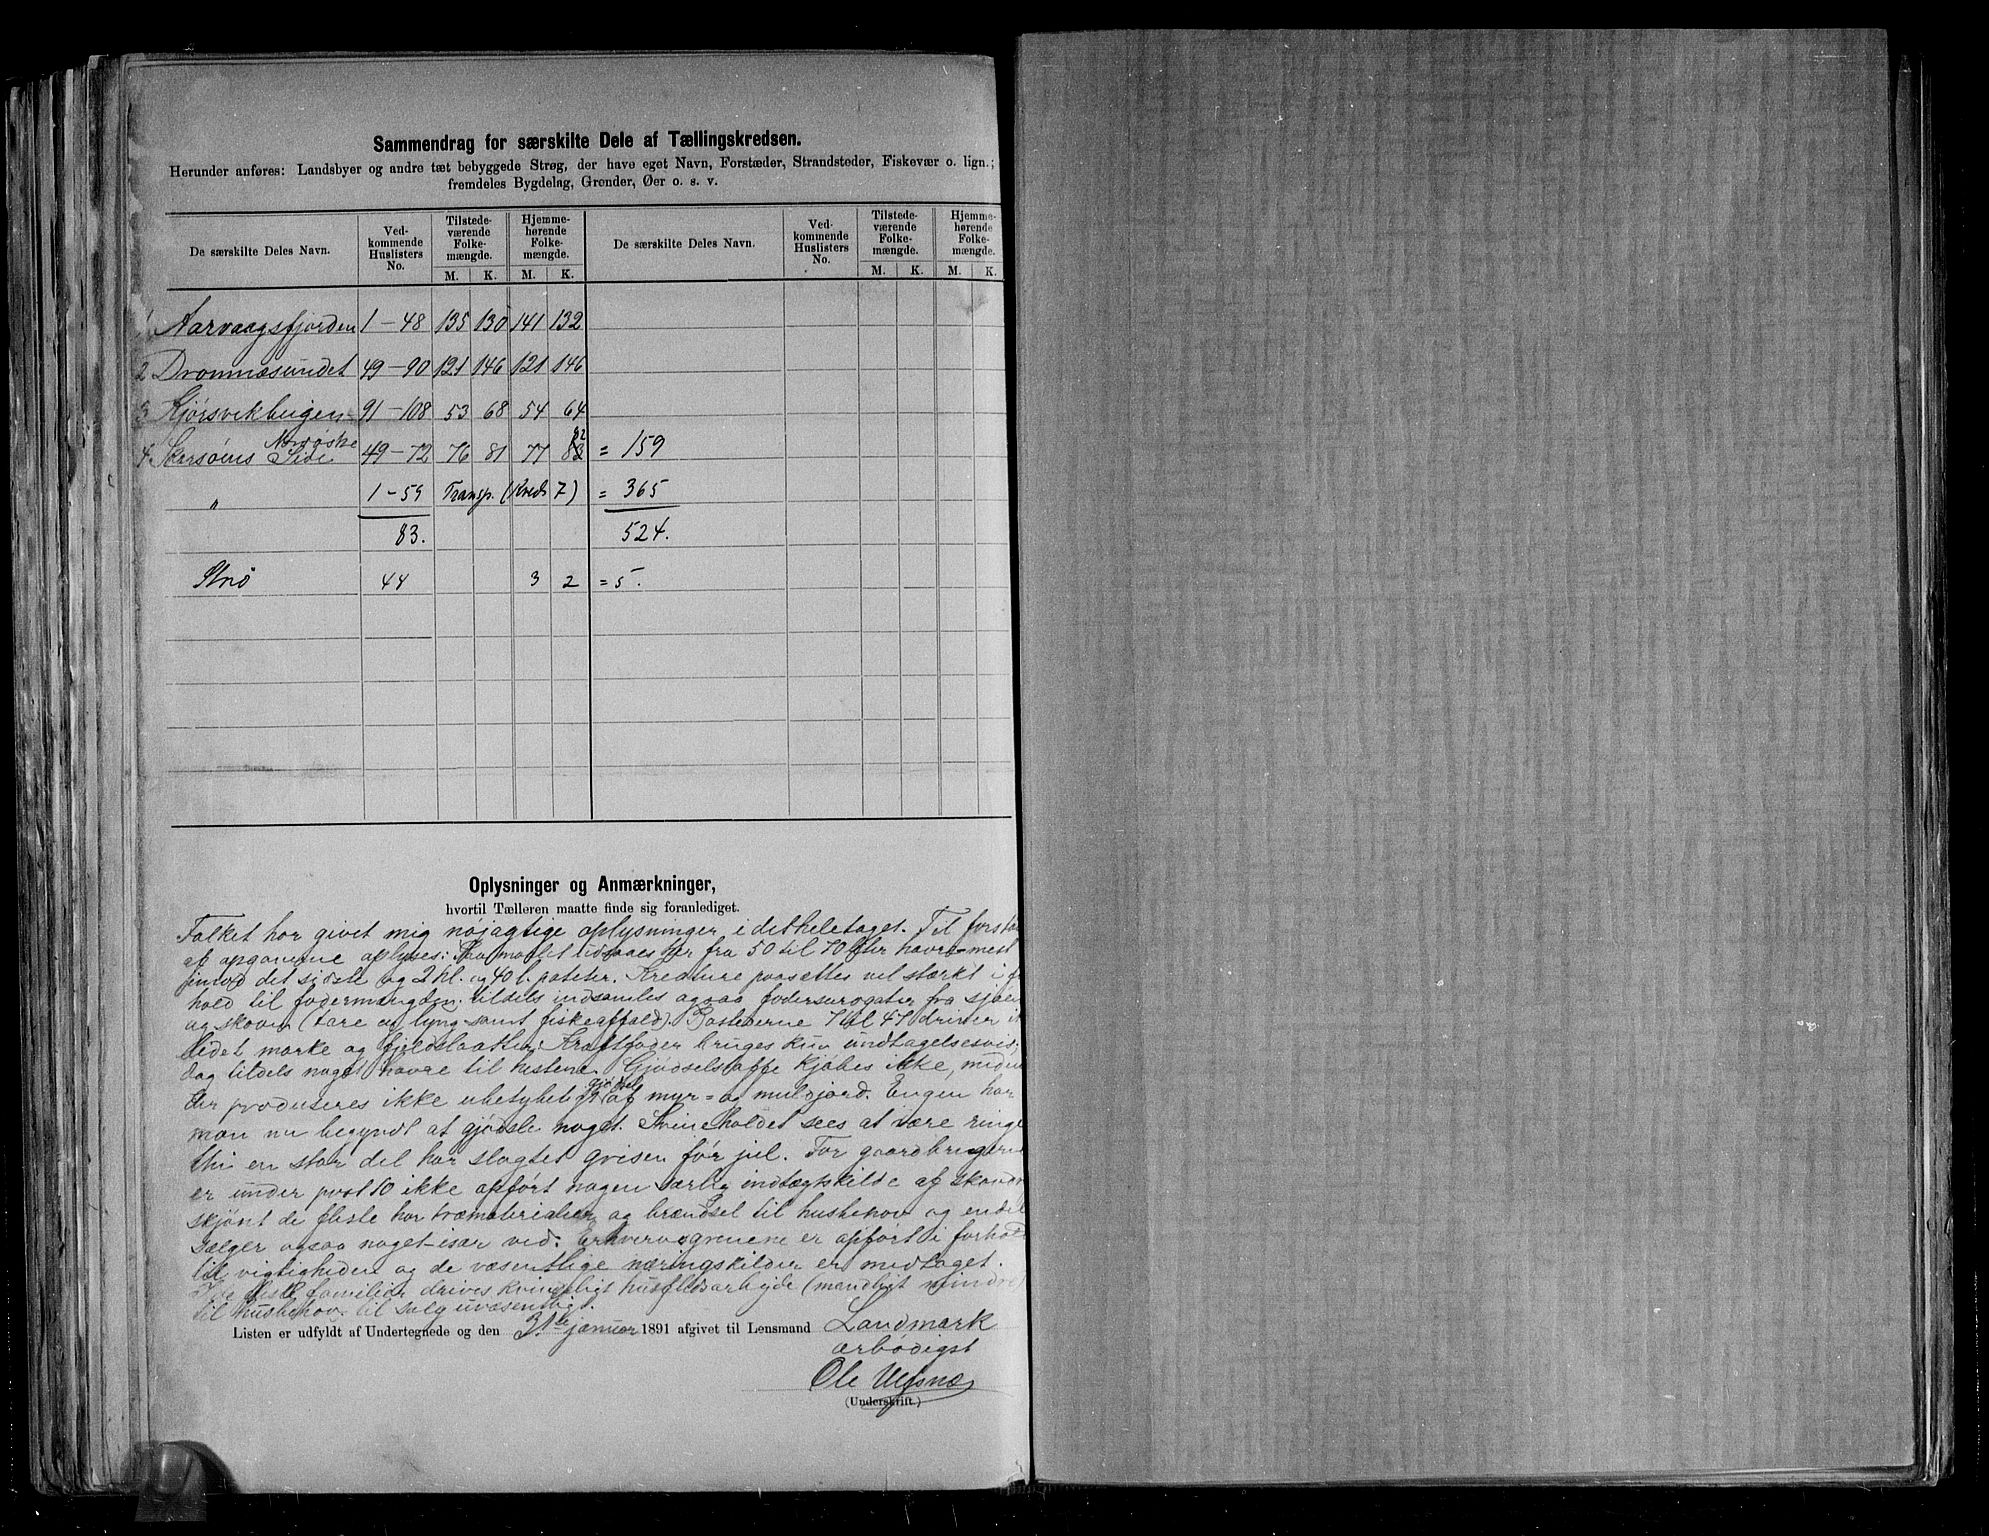 Sammendrag for særskilte Dele af Tællingskredsen.
Herunder anføres: Landsbyer og andre tæt bebyggede Strøg, der have eget Navn, Forstæder, Strandsteder, Fiskevær o. lign.;
fremdeles Bygdelag, Grender, Øer o. s. v.
De særskilte Deles Navn. Ved-kommende Huslisters No. Tilstede-værende Folke-mængde. Hjemme-hørende Folke-mængde. De særskilte Deles Navn. Ved-kommende Huslisters No. Tilstede-værende Folke-mængde. Hjemme-hørende Folke-mængde.
M. K. M. K. M. K. M. K.
1 Aarvaagsfjorden 1-48 135 130 141 132
2 Dromnæsundet 49-90 121 146 121 146
3 Kjörsvikbugen 91-108 53 68 54 64
4 Skarsöens Nordöstre Side 49-72 76 81 77 82 = 159
" 1-59 Transp. (Kreds 7) = 365
83. 524.
44 3 2 = 5.
Oplysninger og Anmærkninger,
hvortil Tælleren maatte finde sig foranlediget.
Folket har givet mig nöjagtige oplysninger i det hele taget. Til
af opgaverne oplyses: Paa maalet udsaaes her fra 50 til 70 liter havre mest
det sidste og 2 hl. og 40 l. poteter. Kreature paasættes vel stærkt i
hold til fodermængden. tildels indsamles ogsaa fodersurogater fra sjöen
og skoven (tare og lyng samt fiskeaffald). 7 til 47 driver
marke og fjeldslaatter. Kraftfoder bruges kun undtagelsesvis,
dog tildels noget havre til hestene. Gjödselstoffe kjöbes ikke, meden
der produseres ikke ubetydelig gjödsel af myr- og muldjord. Engen har
man nu begyndt at gjödsle noget. Svineholdet sees at være ringe
thi en stor del har slagtet grisen för jul. For gaardbrugerne
er under post 10 ikke opfört nogen særlig indtægtskilde af skoven
skjönt de fleste har træmaterialier og brændsel til husbehov og endel
sælger ogsaa noget især ved. Erhvervsgrenene er opfört i forhold
til vigtigheden og de væsentlige næringskilder er medtaget.
I de fleste familier drives kvindeligt husflidsarbejde (mandligt mindre)
til husbehov, til salg uvæsentligt.
Listen er udfyldt af Undertegnede og den 31te januar 1891 afgivet til Lensmand Landmark
ærbödigst
Ole
(Underskrift.)